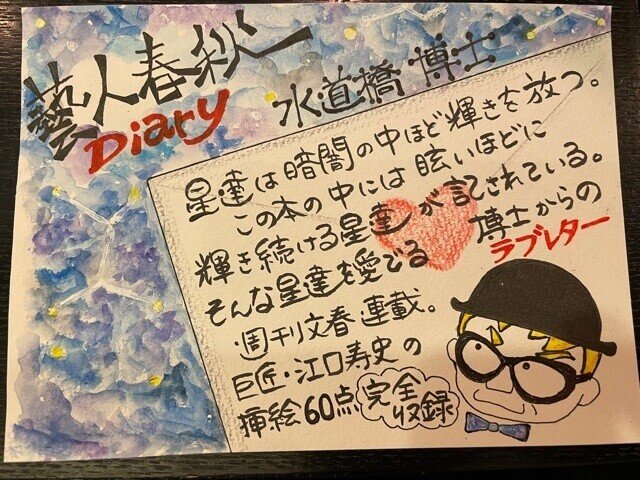 藝人春秋
Diary
水道橋博士
星達は暗闇の中ほど輝きを放つ。
この本の中には眩いほどに
輝き続ける星達が記されている。
そんな星達を愛でる 博士からの
ラブレター
週刊文春連載。
巨匠・江口寿史の
挿絵60点 完全
収録